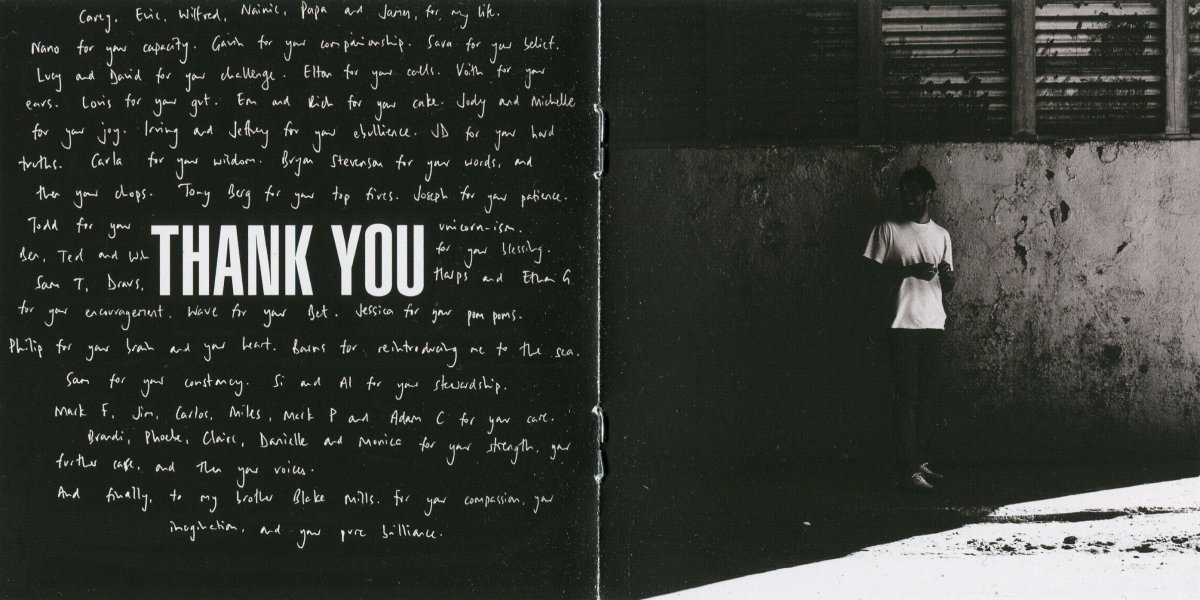 Carey, Evie, Wilfred, Nainie, Papa and James, for my life.
Nano for your capacity. Gavin for your companionship. Sara for your belief.
Lucy and David for your challenge. Elton for your calls. Voith for your
ears. Louis for your gut. Em and Rich for your cake. Jody and Michelle
for your joy. Irving and Jeffrey for your ebullience. JD for your hard
truths. Carla for your wisdom. Bryan Stevenson for your words, and
then your chops. Tony Berg for your top fives. Joseph for your patience.
Todd for your unicorn-ism.
Ben, Ted and for your blessing.
Sam T, Dravs, Harps and Ethan G
THANK YOU
for your encouragement. Wave for your Bet. Jessica for your pom poms.
Philip for your brain and your heart. Barns for reintroducing me to the sea.
Sam for your constancy. Si and Al for your stewardship.
Mark F, Jim, Carlos, Miles, Mark P and Adam C for your care.
Brandi, Phoebe, Claire, Danielle and Monica for your strength, your
further care, and then your voices.
And finally, to my brother Blake Mills. For your compassion, your
imagination, and your pure brilliance.